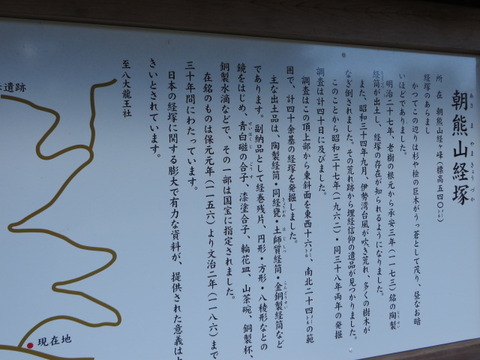 朝熊山経塚
あさまやまきょうづか
所在 朝熊山経ヶ峰（標高五四〇㍍）
経塚のあらまし
かつてこの辺りは杉や桧の巨木がうっ蒼として茂り、昼なお暗
いほどでありました。
明治二十七年、老樹の根元から承安三年（一一七三）銘の陶製
経筒が出土し、経塚の存在が知られるようになりました。
また、昭和三十四年九月、伊勢湾台風が吹き荒れ、多くの樹木が
なぎ倒されました。その荒れ跡から埋経信仰の遺品が見つかりました。
このことから昭和三十七年（一九六二）・同三十八年両年の発掘
調査は計四十日に及びました。
調査はこの頂上部から東斜面を東西十六㍍、南北二十四㍍の範
囲で、計四十余基の経塚を発掘しました。
主な出土品は、陶製経筒・同経甕・土師質経筒・金銅製経筒など
であります。副納品として経巻残片、円形・方形・八稜形などの
鏡をはじめ、青白磁の合子、漆塗合子、輪花皿、山茶碗、銅製杯、
銅製水滴などで、その一部は国宝に指定されました。
在銘のものは保元元年（一一五六）より文治二年（一一八六）まで
三十年間にわたっています。
日本の経塚に関する膨大で有力な資料が、提供された意義は大
きいとされています。
至八大龍王社
遺跡
現在地